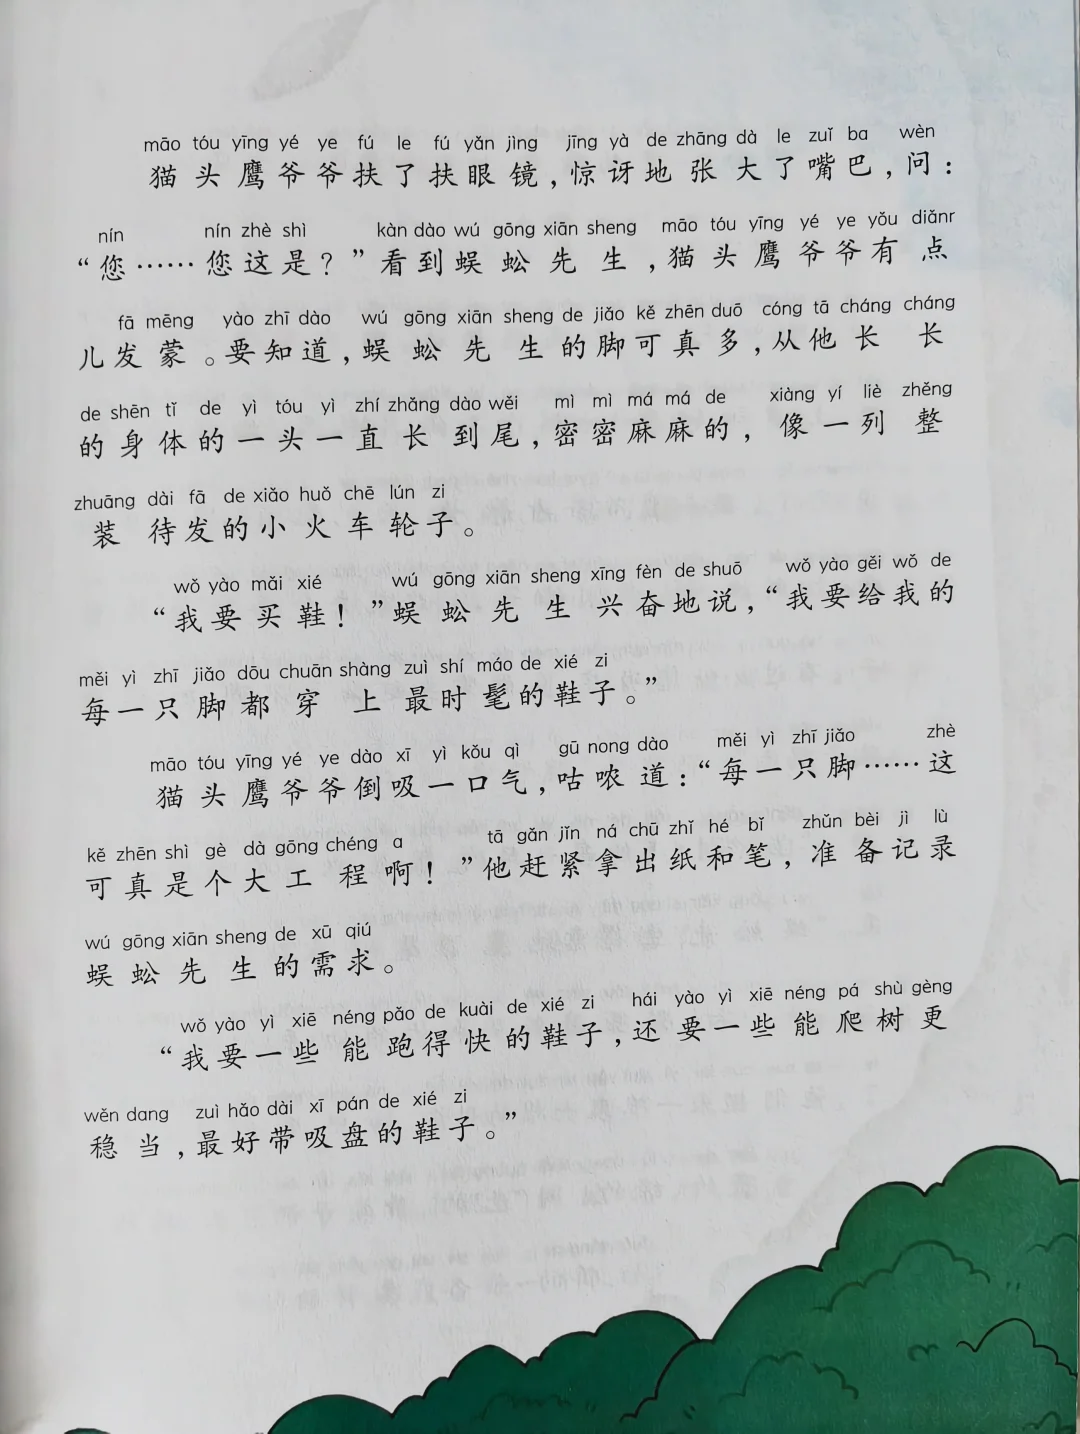 māo tóu yīng yé ye fú le fú yǎn jìng jīng yà de zhāng dà le zuǐ ba wèn
猫头鹰爷爷扶了扶眼镜,惊讶地张大了嘴巴,问:
nín nín zhè shì kàn dào wú gōng xiān sheng māo tóu yīng yé ye yǒu diǎnr
“您……您这是?”看到蜈蚣先生,猫头鹰爷爷有点
fā mēng yào zhī dào wú gōng xiān sheng de jiǎo kě zhēn duō cóng tā cháng cháng
儿发蒙。要知道,蜈蚣先生的脚可真多,从他长长
de shēn tǐ de yì tóu yì zhí zhǎng dào wěi mì mì má má de xiàng yí liè zhěng
的身体的一头一直长到尾,密密麻麻的,像一列整
zhuāng dài fā de xiǎo huǒ chē lún zi
装待发的小火车轮子。
wǒ yào mǎi xié wú gōng xiān sheng xīng fèn de shuō wǒ yào gěi wǒ de
“我要买鞋!”蜈蚣先生兴奋地说,“我要给我的
měi yì zhī jiǎo dōu chuān shàng zuì shí máo de xié zi
每一只脚都穿上最时髦的鞋子。”
māo tóu yīng yé ye dào xī yì kǒu qì gū nong dào měi yì zhī jiǎo zhè
猫头鹰爷爷倒吸一口气,咕哝道:“每一只脚……这
kě zhēn shì gè dà gōng chéng a tā gǎn jǐn ná chū zhǐ hé bǐ zhǔn bèi jì lù
可真是个大工程啊!”他赶紧拿出纸和笔,准备记录
wú gōng xiān sheng de xū qiú
蜈蚣先生的需求。
wǒ yào yì xiē néng pǎo de kuài de xié zi hái yào yì xiē néng pá shù gèng
“我要一些能跑得快的鞋子,还要一些能爬树更
wěn dang zuì hǎo dài xī pán de xié zi
稳当,最好带吸盘的鞋子。”